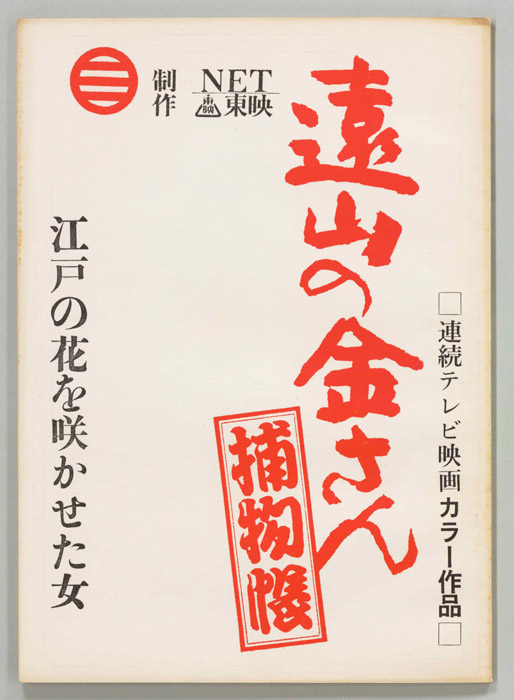 □連続テレビ映画カラー作品□
遠山の金さん
捕物帳
NET
東映
東映
制作
江戸の花を咲かせた女